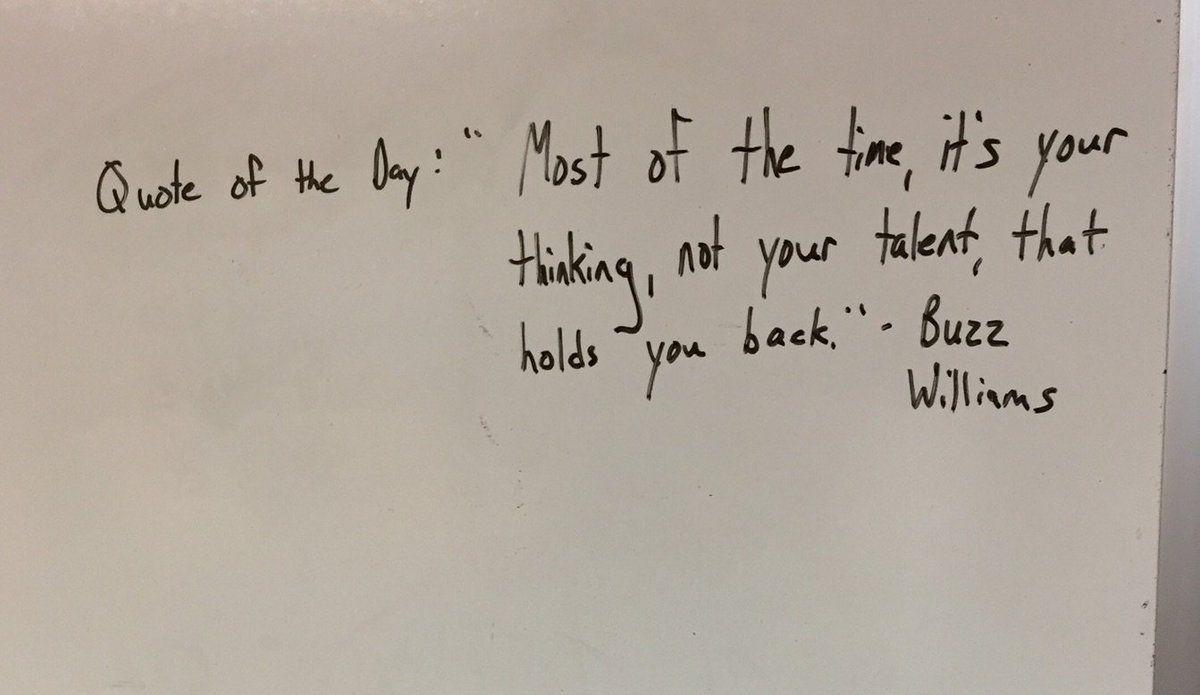 Quote of the Day: " Most of the time, it's your
thinking, not your talent, that
holds you back." - Buzz
Williams